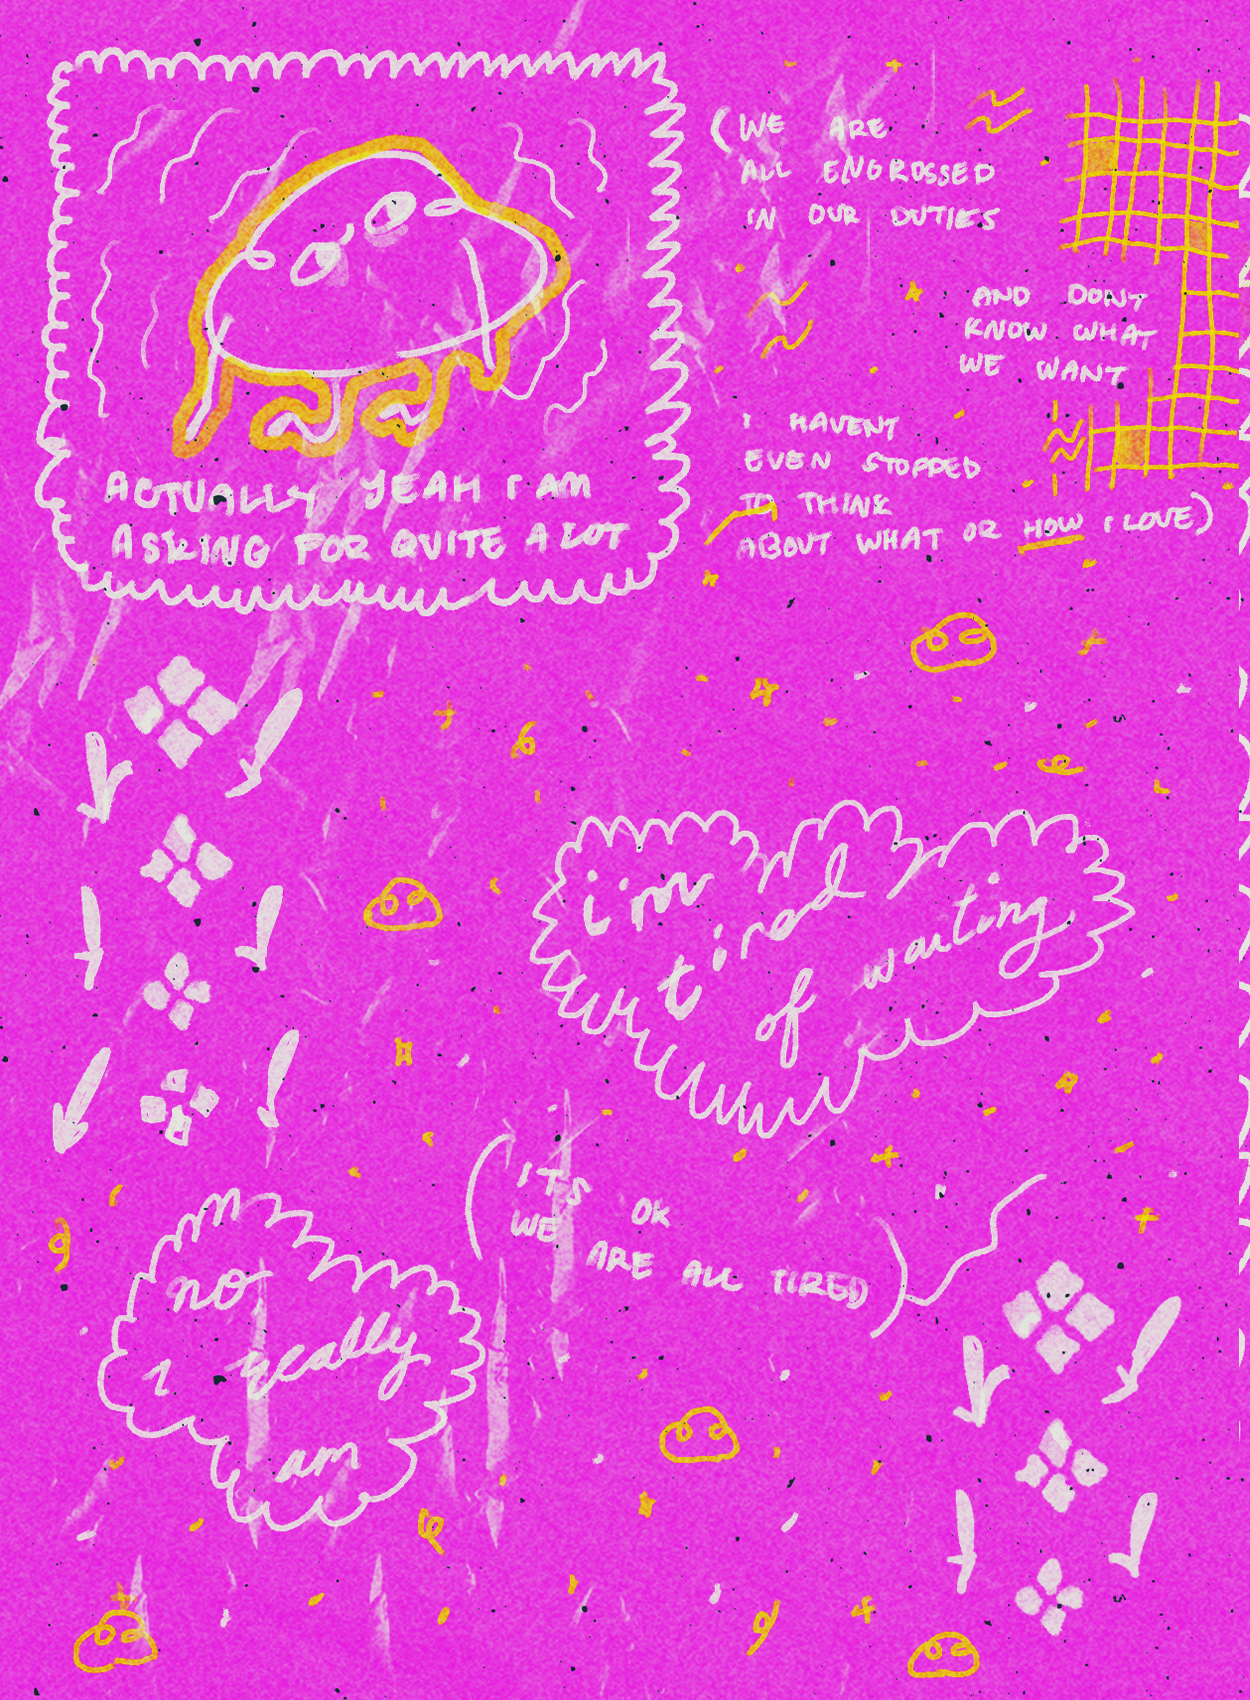 ACTUALLY YEAH I AM
ASKING FOR QUITE A LOT
(WE ARE
ALL ENGROSSED
IN OUR DUTIES
AND DONT
KNOW WHAT
WE WANT
I HAVENT
EVEN STOPPED
TO THINK
ABOUT WHAT OR HOW I LOVE)
i'm
tired
of waiting
(ITS OK
WE ARE ALL TIRED)
no
i really
am